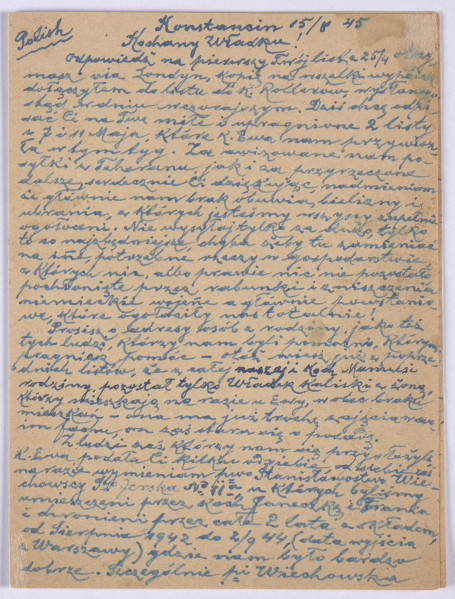 Polish
Konstancin 15/8 45
Kochany Władku!
Odpowiedź na pierwszy Twój list z 25/4 otrzy-
masz via Londyn, kopię na wszelki wypadek
dołączyłem do listu do K. Rollerów, wysłanego
stąd w dniu wczorajszym. Dziś chcę odpi-
sać Ci na Twe miłe i upragnione 2 listy
z 7 i 11 Maja, które K. Ewa nam przywioz-
ła w tym tyg. Za awizowane nam po-
syłki z Teheranu, jak i za przyrzeczone
dalsze, serdecznie Ci dziękując, nadmieniam
że głównie nam brak obuwia, bielizny i
ubrania, z których jesteśmy wszyscy zupełnie
ogołoceni. Nie wysyłaj tylko za dużo, tylko
to co najniezbędniejsze, chyba żeby tu zamieniać
na inne, potrzebne rzeczy w gospodarstwie
z których nic, albo prawie nic nie pozostało
pochłonięte przez rabunki i zniszczenia
niemieckie wojenne a głównie powstanio-
we, które ogołociły nas totalnie!
Prosisz o adresy osób z rodziny, jako też
tych ludzi, którzy nam byli pomocni, którym
pragniesz pomóc – Otóż wiesz już z poprze-
dnich listów, że z całej naszej i Koch. Mamusi
rodziny, pozostał tylko Władek Kaliski z żoną,
którzy mieszkają na razie u Ewy, wobec braku
mieszkań – ona ma już trochę zajęcia swo-
im fachu, on zaś stara się o posadę.
Z ludzi zaś którzy nam się przysłużyli
K. Ewa podała Ci kilku u siebie, od siebie zaś
na razie wymieniam pwo Stanisławostwo Wie-
chowscy u których byliśmy
umieszczeni przez Koch. Janeczkę i Franka
i chronieni przez całe 2 lata z okładem,
od Sierpnia 1942 do 2/9 44 (data wyjścia
z Warszawy) gdzie nam było bardzo
dobrze. Szczególnie pi Wiechowska